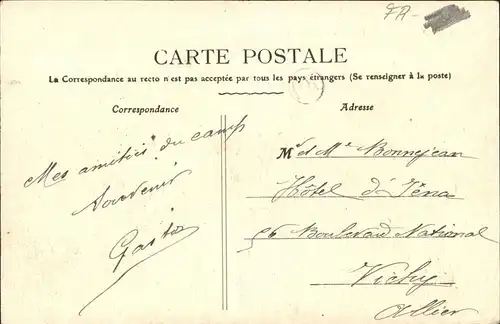 FA-
CARTE POSTALE
La Correspondance au recto n'est pas acceptée par tous les pays étrangers (Se renseigner à la poste)
Correspondance
Mes amitiés du camp
Souvenir
Gaston
Adresse
Mr et Me Bonnejean
Hôtel d'Iéna
56 Boulevard National
Vichy
Allier